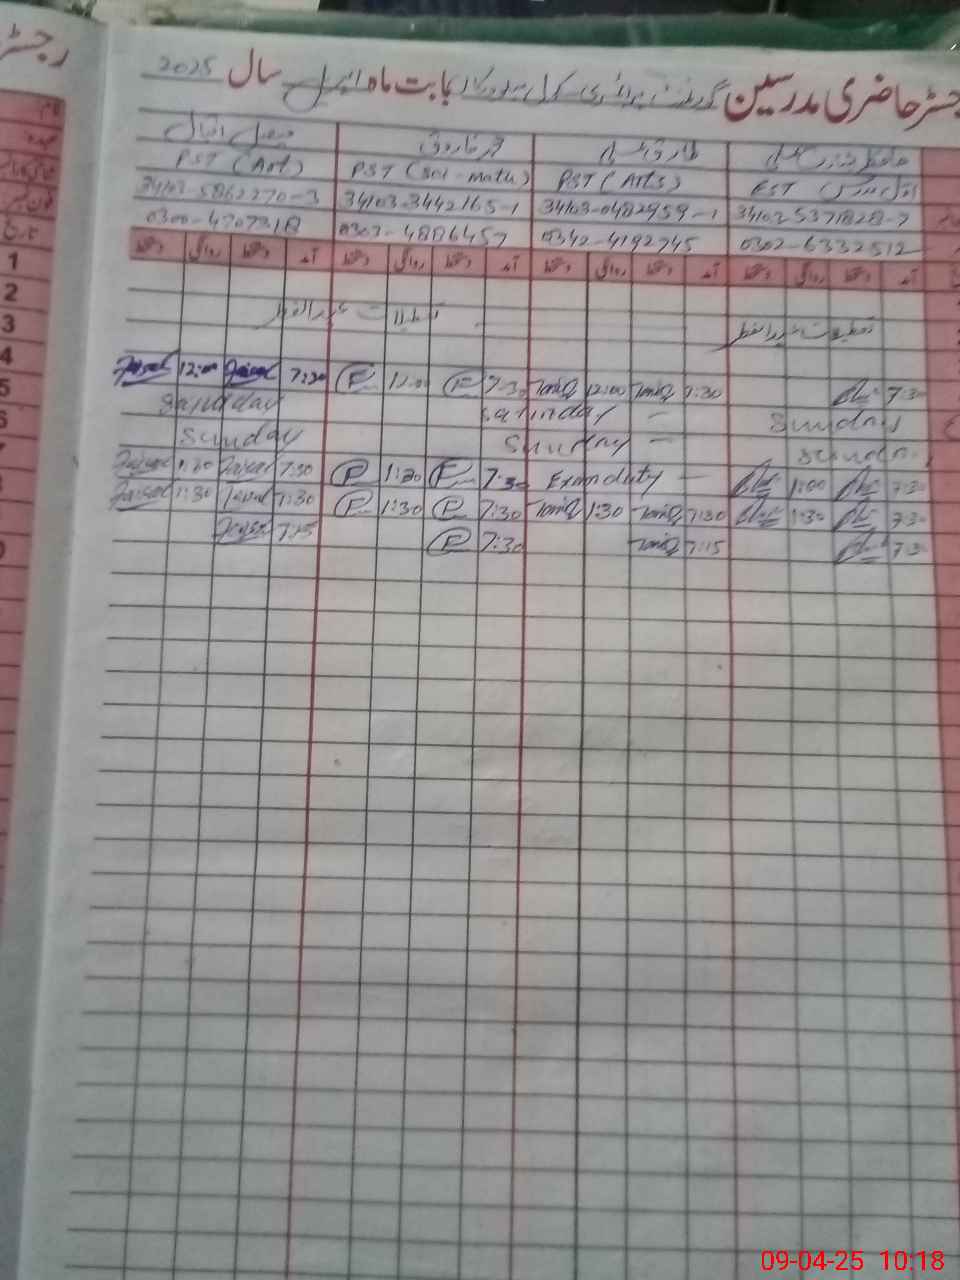 رجسٹر حاضری مدرسین گورنمنٹ پرائمری سکول بابت ماہ اپریل سال 2025
فیصل اقبال
طارق
PST (Art) PST (Sci-math) PST (Arts) EST
34103-5862270-3 34103-3442165-1 34103-0482959-1 34103-5371828-7
0300-4707318 0303-4886457 0342-4192745 0302-6332512
دستخط روانگی دستخط آمد دستخط روانگی دستخط آمد دستخط روانگی دستخط آمد دستخط روانگی دستخط آمد
1
2
3 تعطیلات عید الفطر تعطیلات عید الفطر
4 Faisal 12:00 Faisal 7:30 F 12:00 F 7:30 Tariq 12:00 Tariq 7:30 7:30
5 Saturday Saturday — Sunday
6 Sunday Sunday — Sunday
Faisal 1:30 Faisal 7:30 F 1:30 F 7:30 Exam duty — 1:00 7:30
Faisal 1:30 Faisal 7:30 F 1:30 F 7:30 Tariq 1:30 Tariq 7:30 1:30 7:30
Faisal 7:15 F 7:30 Tariq 7:15 7:30
09-04-25 10:18